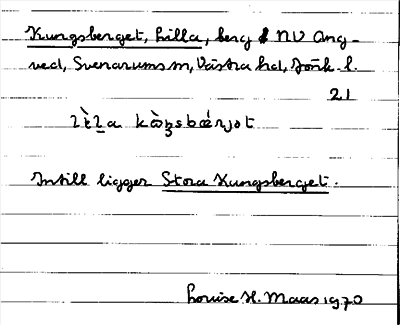 Kungsberget, Lilla, berg NV Ang-
ved, Svenarums sn, Västra hd, Jönk. l.
21
Intill ligger Stora Kungsberget.
Louise H. Maas 1970